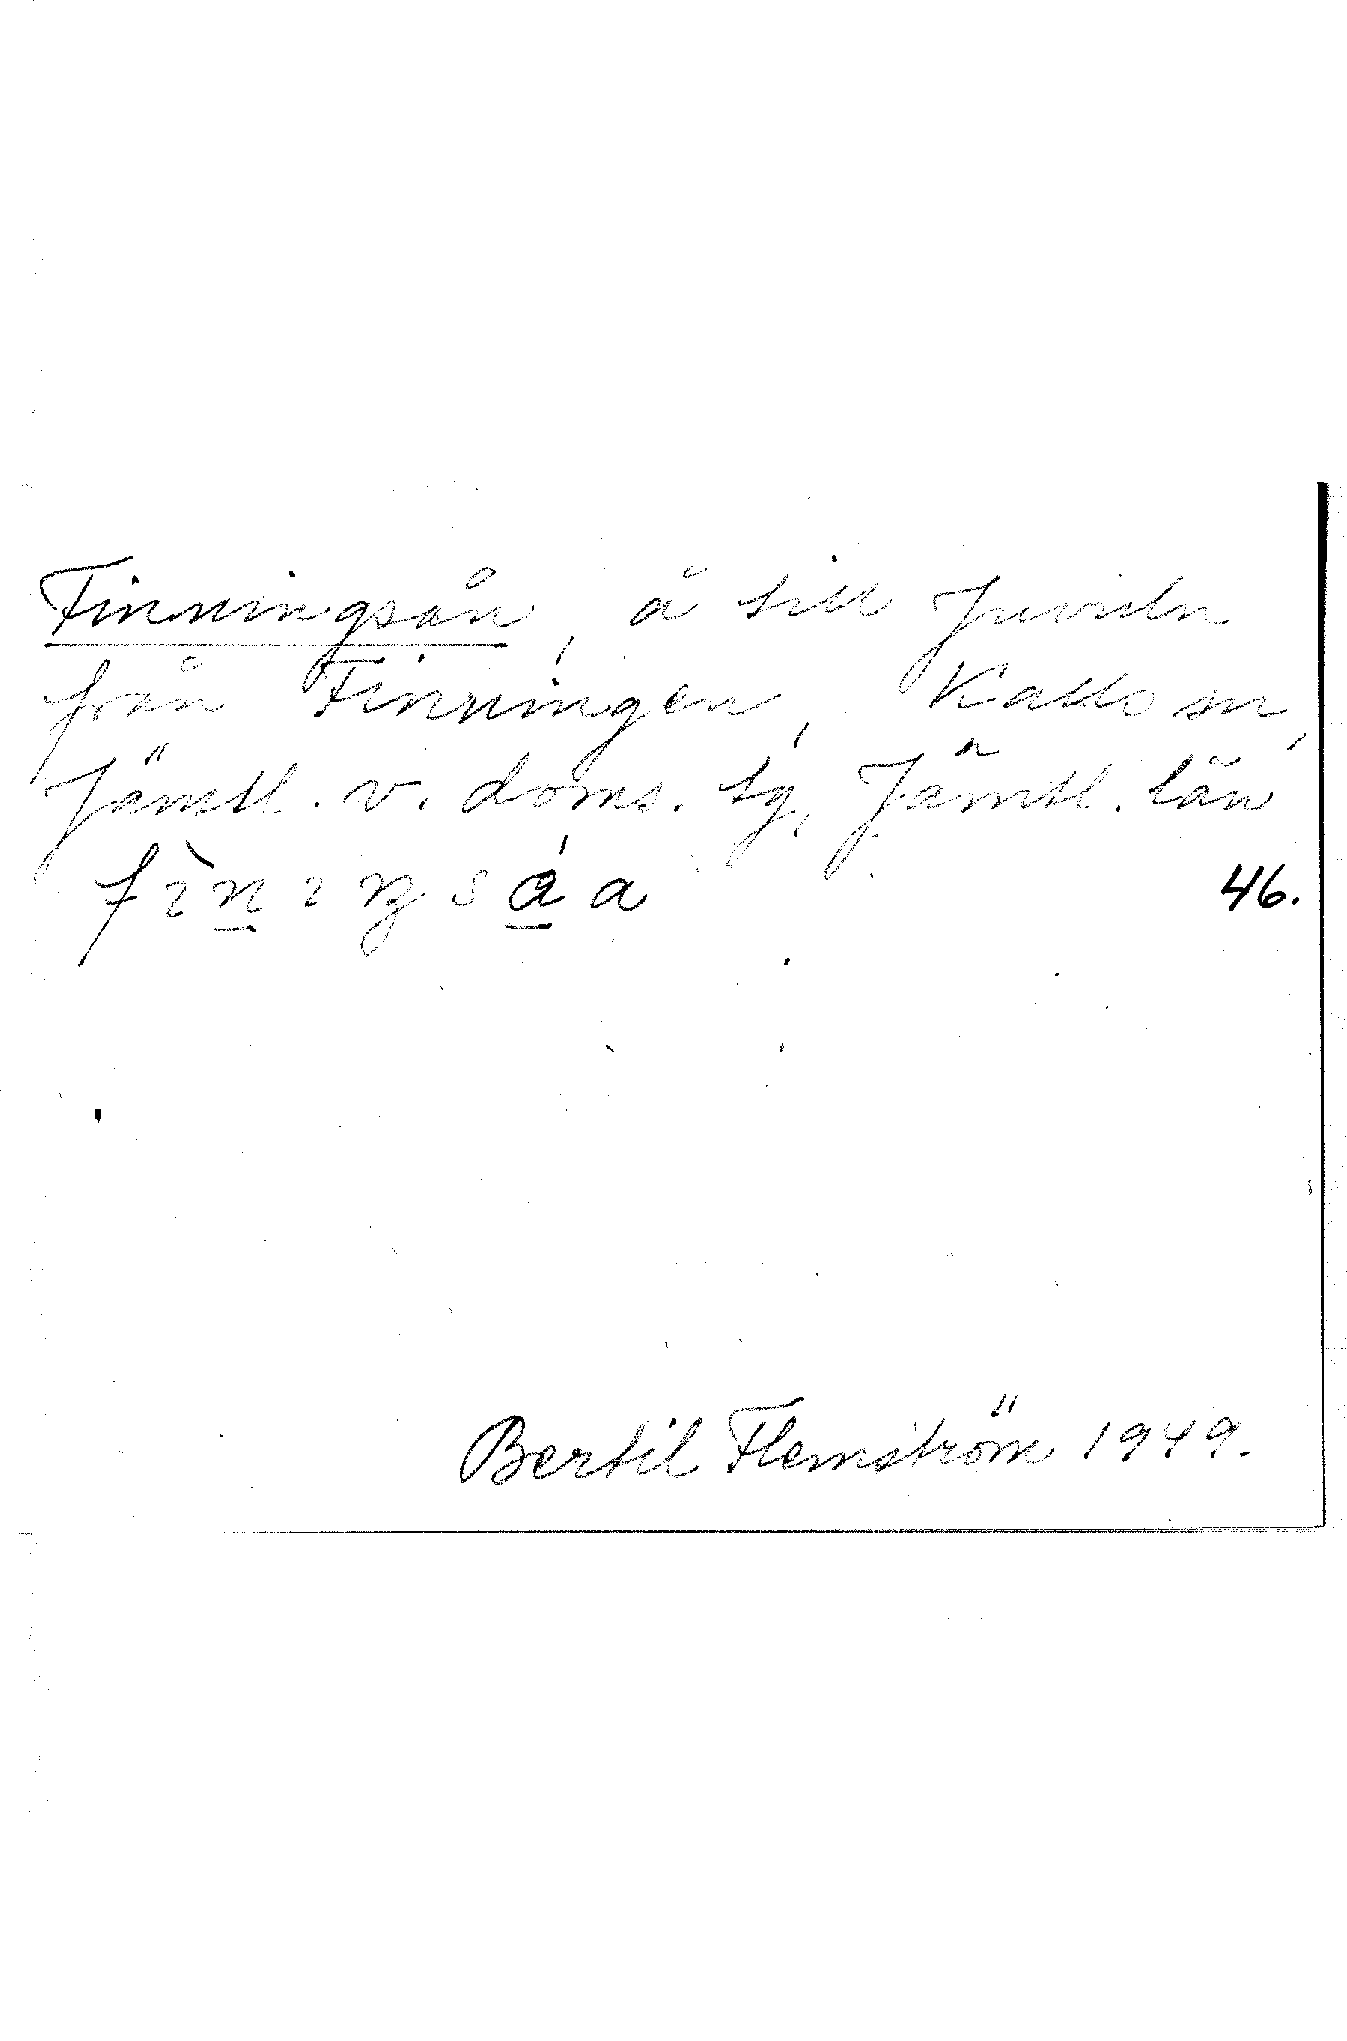 Finningsån, å till Juveln
från Finningen, Kalls sn,
Jämtl. v. doms. tg, Jämtl. län
fìn̲ıŋsǻ̲a 46.
Bertil Flemström 1949.